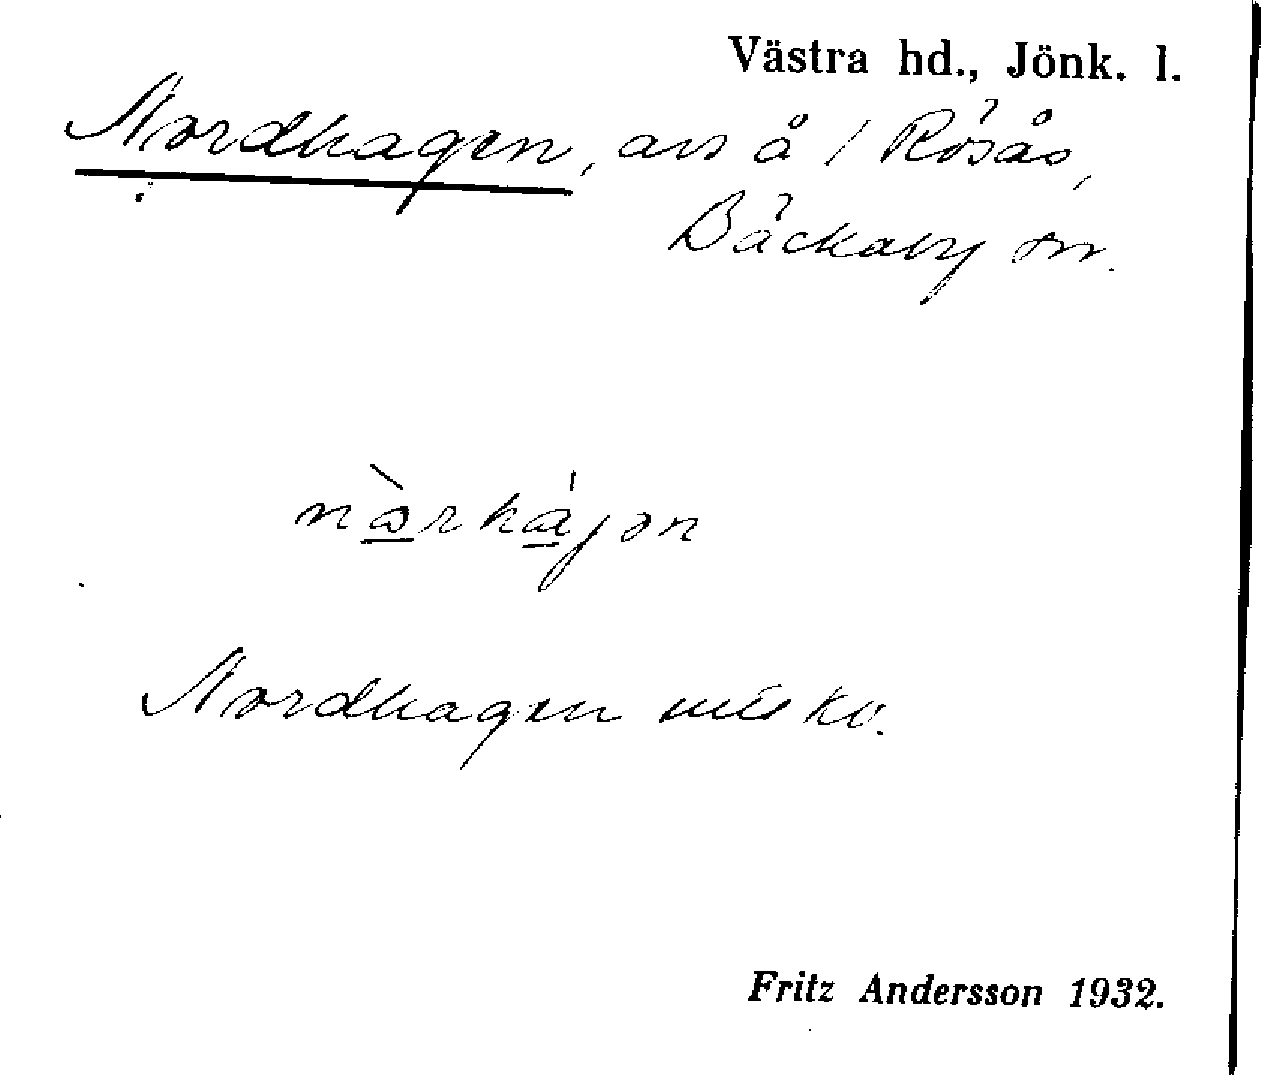 Västra hd., Jönk. l.
Nordhagen, avs å 1 Rösås,
Bäckaby sn.
nàrhájən
Nordhagen
Fritz Andersson 1932.